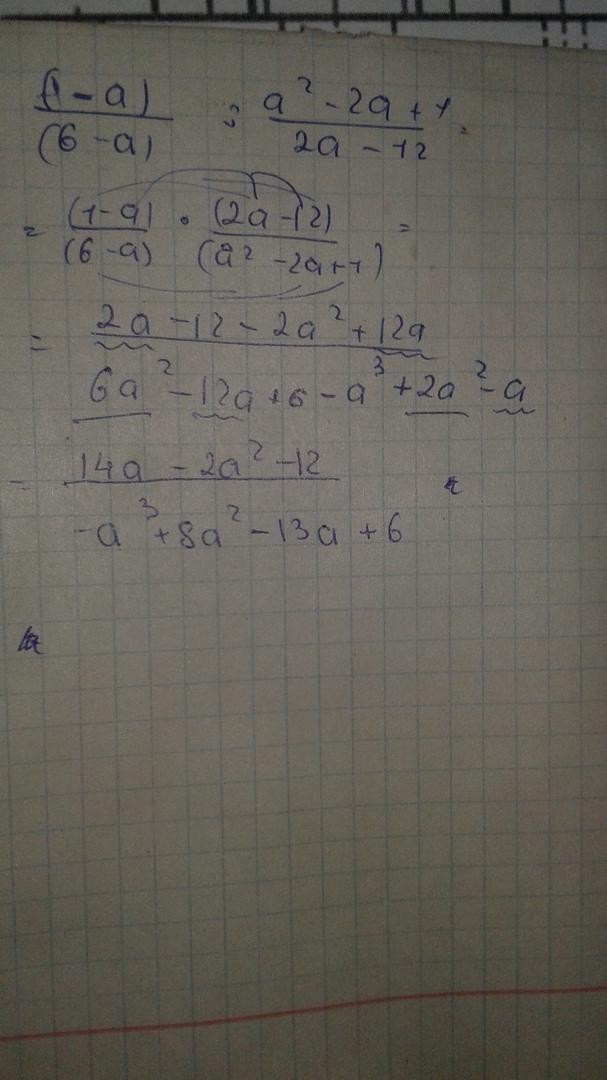 (1-a)/(6-a) : (a²-2a+1)/(2a-12) =
= (1-a)/(6-a) · (2a-12)/(a²-2a+1) =
= (2a-12-2a²+12a)/(6a²-12a+6-a³+2a²-a)
= (14a-2a²-12)/(-a³+8a²-13a+6)